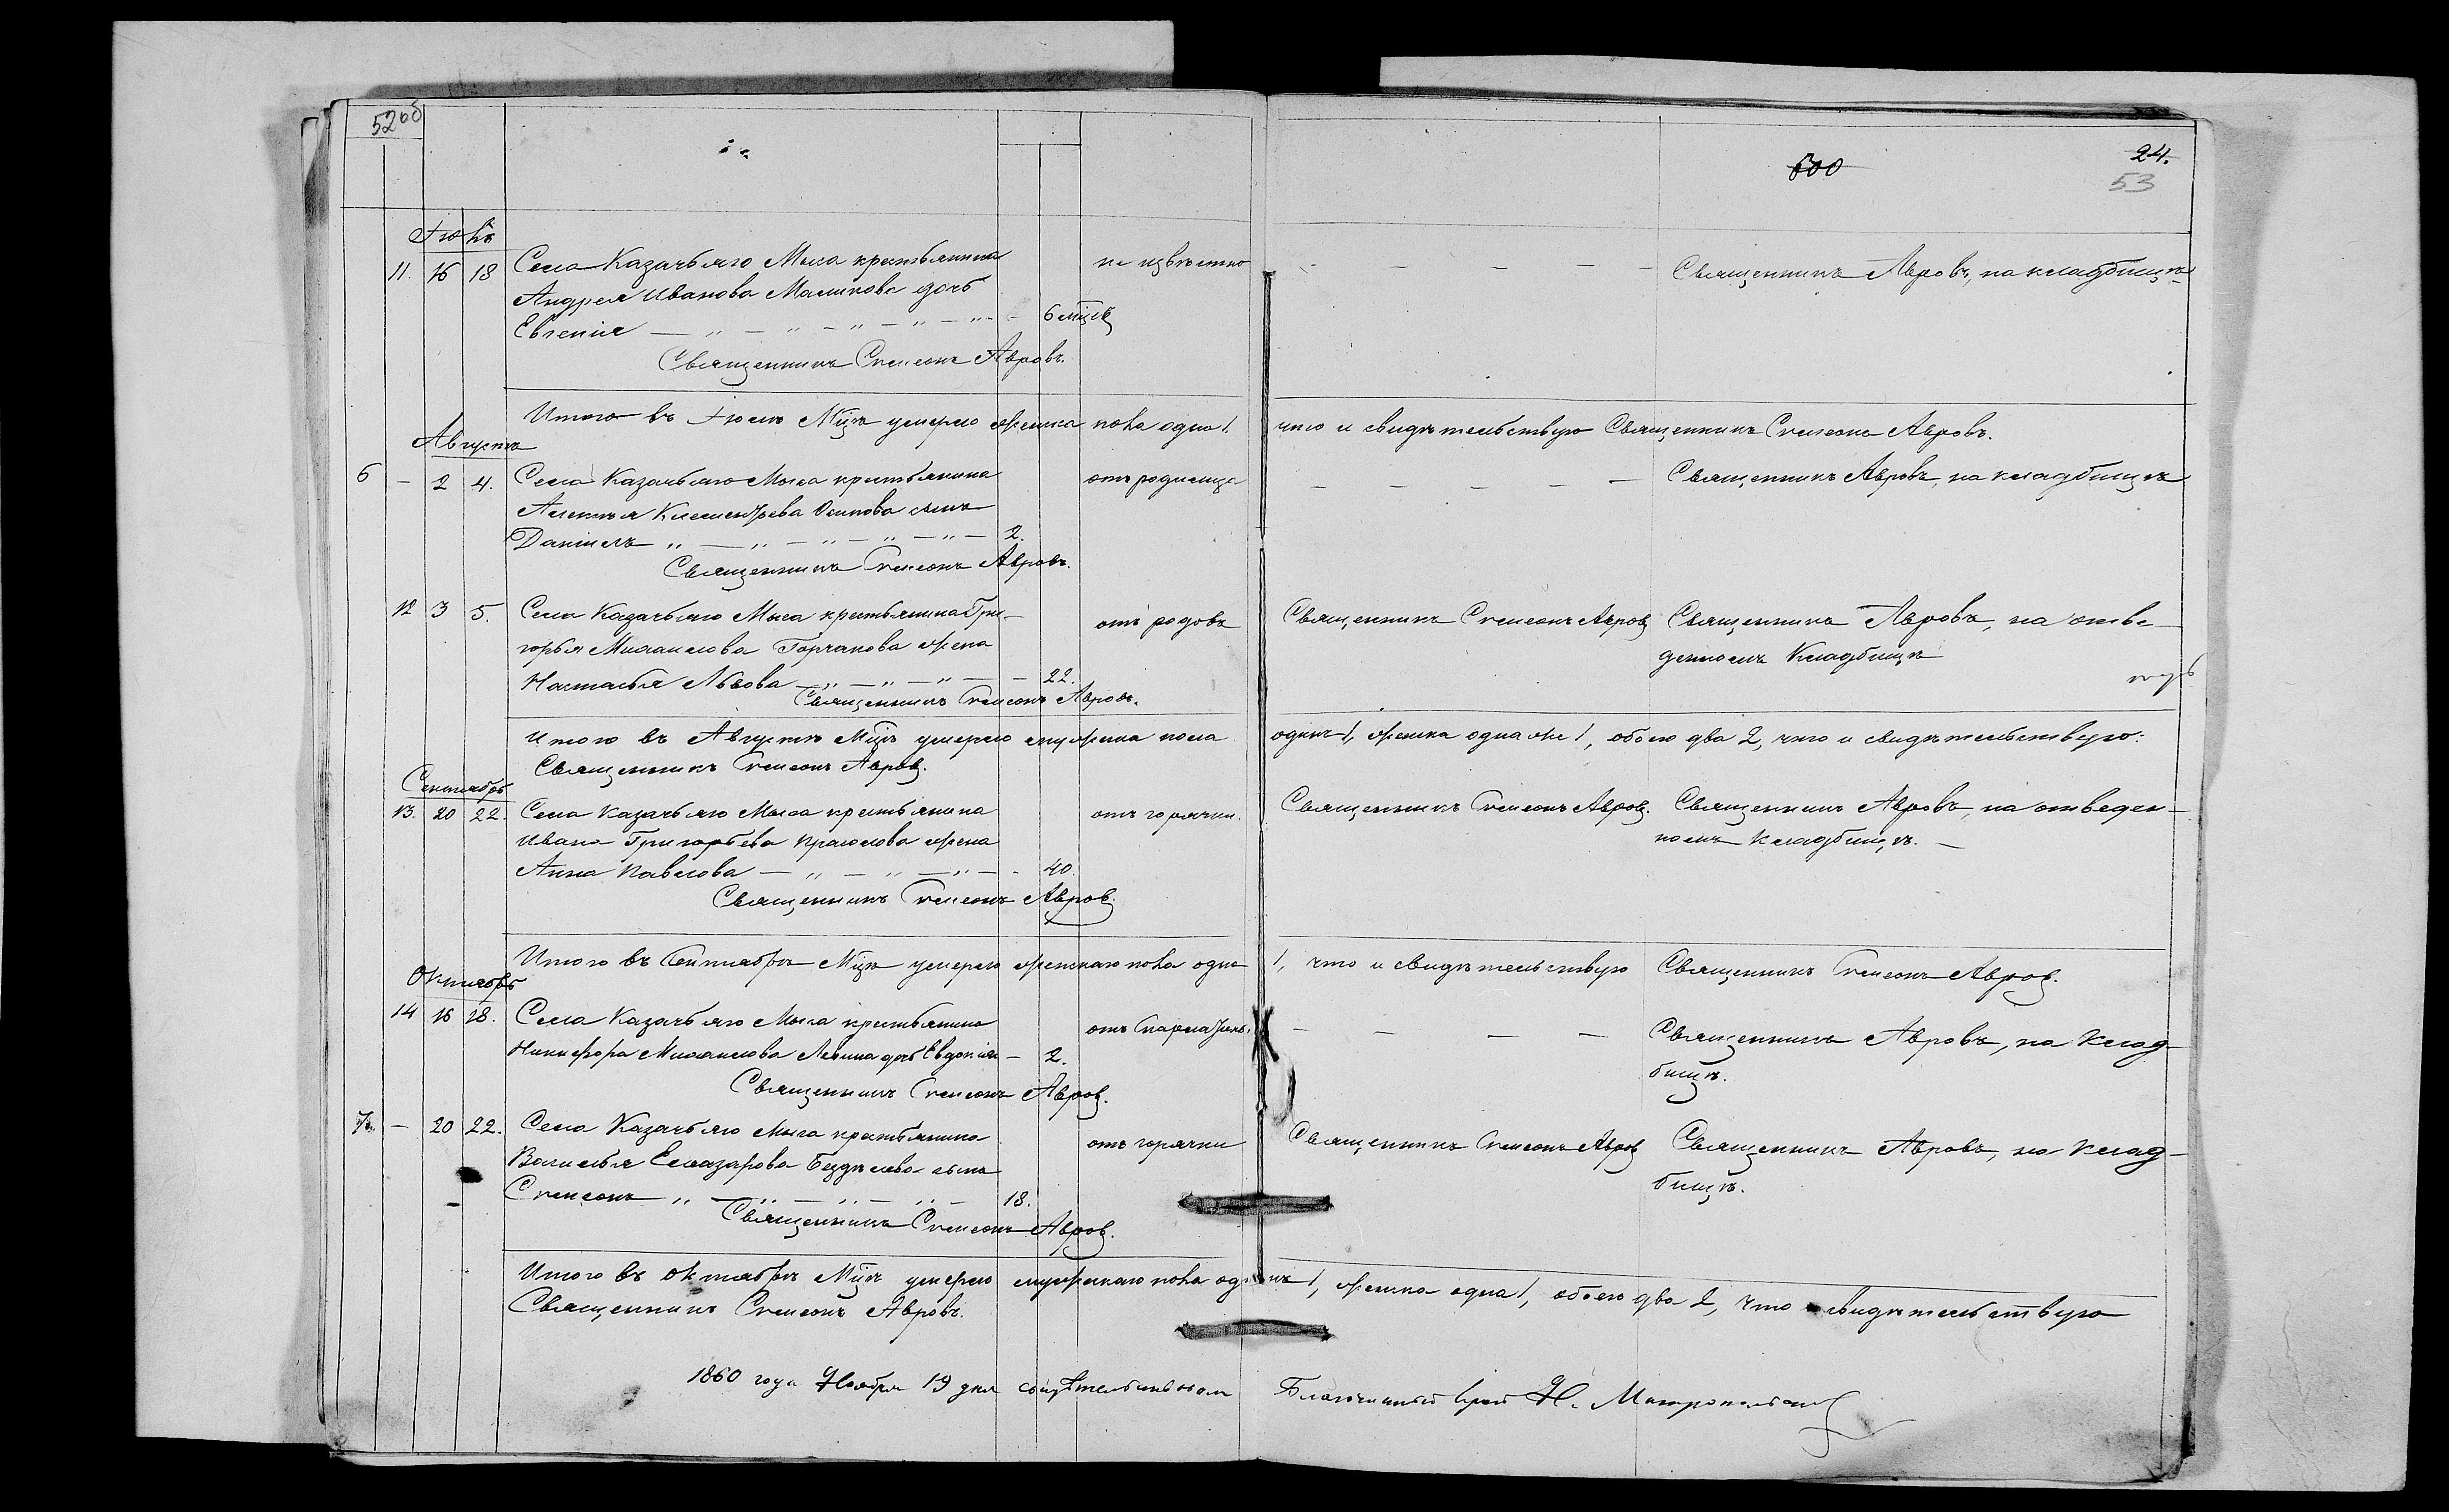 52 об
24.
600
53
Іюль
11. 16 18 Села Казачьяго Мыса крестьянина не извѣстно — — — — — Священникъ Авровъ, на кладбищѣ
Андрея Иванова Маликова дочь
Евгенія — „ — „ — „ — „ — „ — 6 мѣсяц
Священникъ Симеонъ Авровъ.
Итого въ Іюлѣ Мцѣ умерло женска пола одна 1. что и свидѣтельствую Священникъ Симеонъ Авровъ.
Августъ
6 — 2 4. Села Казачьяго Мыса крестьянина отъ родимца — — — — — Священникъ Авровъ, на кладбищѣ
Алексѣя Климентьева Осипова сынъ
Даніилъ „ — „ — „ — „ — „ — 2.
Священникъ Симеонъ Авровъ.
12 3 5. Села Казачьяго Мыса крестьянина Гри- отъ родовъ Священникъ Симеонъ Авровъ Священникъ Авровъ, на отве-
горья Михаилова Горчакова жена денномъ Кладбищѣ
Настасья Львова — „ — „ — „ — 22.
Священникъ Симеонъ Авровъ.
Итого въ Августѣ Мцѣ умерло мужеска пола одинъ 1, женска одна же 1, обоего два 2, что и свидѣтельствую:
Священникъ Симеонъ Авровъ.
Сентябрь
13. 20 22. Села Казачьяго Мыса крестьянина отъ горячки. Священникъ Симеонъ Авровъ. Священникъ Авровъ, на отведен-
Ивана Григорьева жена номъ кладбищѣ. —
Анна Павлова — „ — „ — „ — 40.
Священникъ Симеонъ Авровъ.
Итого въ Сентябрѣ Мцѣ умерло женскаго пола одна 1, что и свидѣтельствую Священникъ Симеонъ Авровъ.
Октябрь
14 16 18. Села Казачьяго Мыса крестьянина отъ — — — — Священникъ Авровъ, на клад-
Никифора Михаилова Левина дочь Евдокія — 2. бищѣ.
Священникъ Симеонъ Авровъ.
7. — 20 22. Села Казачьяго Мыса крестьянина отъ горячки Священникъ Симеонъ Авровъ Священникъ Авровъ, на клад-
Василья Елеазарова Бездѣлева сынъ бищѣ.
Симеонъ „ — „ — „ — „ — 18.
Священникъ Симеонъ Авровъ.
Итого въ Октябрѣ Мцѣ умерло мужескаго пола одинъ 1, женска одна 1, обоего два 2, что и свидѣтельствую
Священникъ Симеонъ Авровъ.
1860 года Ноября 19 дня свидѣтельствовалъ Благочинный Іерей Н.